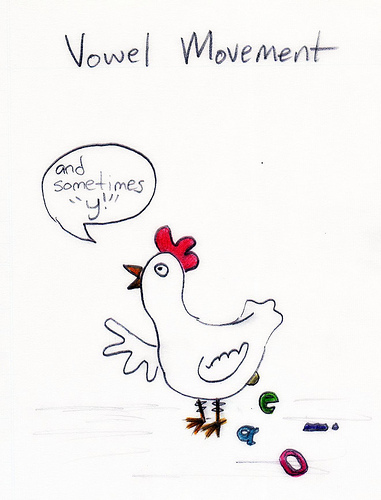 Vowel Movement
and
sometimes
"y!"
e
a i
o